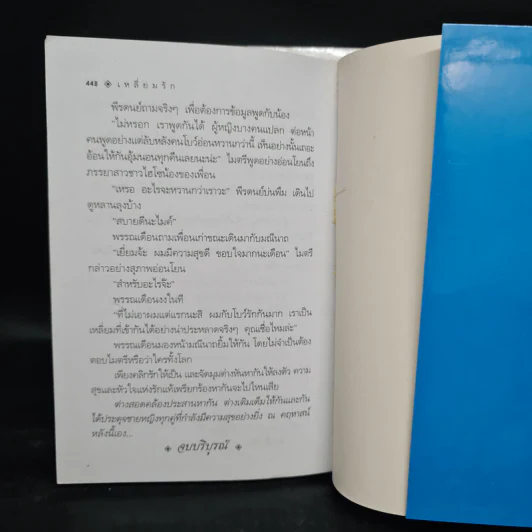 448 ◈ เหลี่ยมรัก
พีรดนย์ถามจริงๆ เพื่อต้องการข้อมูลพูดกับน้อง
“ไม่หรอก เราพูดกันได้ ผู้หญิงบางคนแปลก ต่อหน้า
คนพูดอย่างแต่ลับหลังคนโบว์อ่อนหวานกว่านี้ เห็นอย่างนั้นเถอะ
อ้อนให้กันอุ้มนอนทุกคืนเลยนะน่ะ” ไมตรีพูดอย่างอ่อนโยนถึง
ภรรยาสาวชาวไฮโซน้องของเพื่อน
“เหรอ อะไรจะหวานกว่าเราวะ” พีรดนย์บ่นพึม เดินไป
ดูหลานลุงบ้าง
“สบายดีนะไมค์”
พรรณเดือนถามเพื่อนเก่าขณะเดินมากับมณีนาถ
“เยี่ยมจ้ะ ผมมีความสุขดี ขอบใจมากนะเดือน” ไมตรี
กล่าวอย่างสุภาพอ่อนโยน
“สำหรับอะไรจ๊ะ”
พรรณเดือนงงในที
“ที่ไม่เอาผมแต่แรกนะสิ ผมกับโบว์รักกันมาก เราเป็น
เหลี่ยมที่เข้ากันได้อย่างน่าประหลาดจริงๆ คุณเชื่อไหมล่ะ”
พรรณเดือนมองหน้ามณีนาถยิ้มให้กัน โดยไม่จำเป็นต้อง
ตอบไมตรีหรือว่าใครทั้งโลก
เพียงคลิกรักให้เป็น และจัดมุมต่างหันหากันให้ลงตัว ความ
สุขและหัวใจแห่งรักแท้เพรียกร้องหากันจะไปไหนเสีย
ต่างสอดคล้องประสานหากัน ต่างเติมเต็มให้กันและกัน
ได้ประดุจชายหญิงทุกคู่ที่กำลังมีความสุขอย่างยิ่ง ณ คฤหาสน์
หลังนี้เอง...
◈ จบบริบูรณ์ ◈